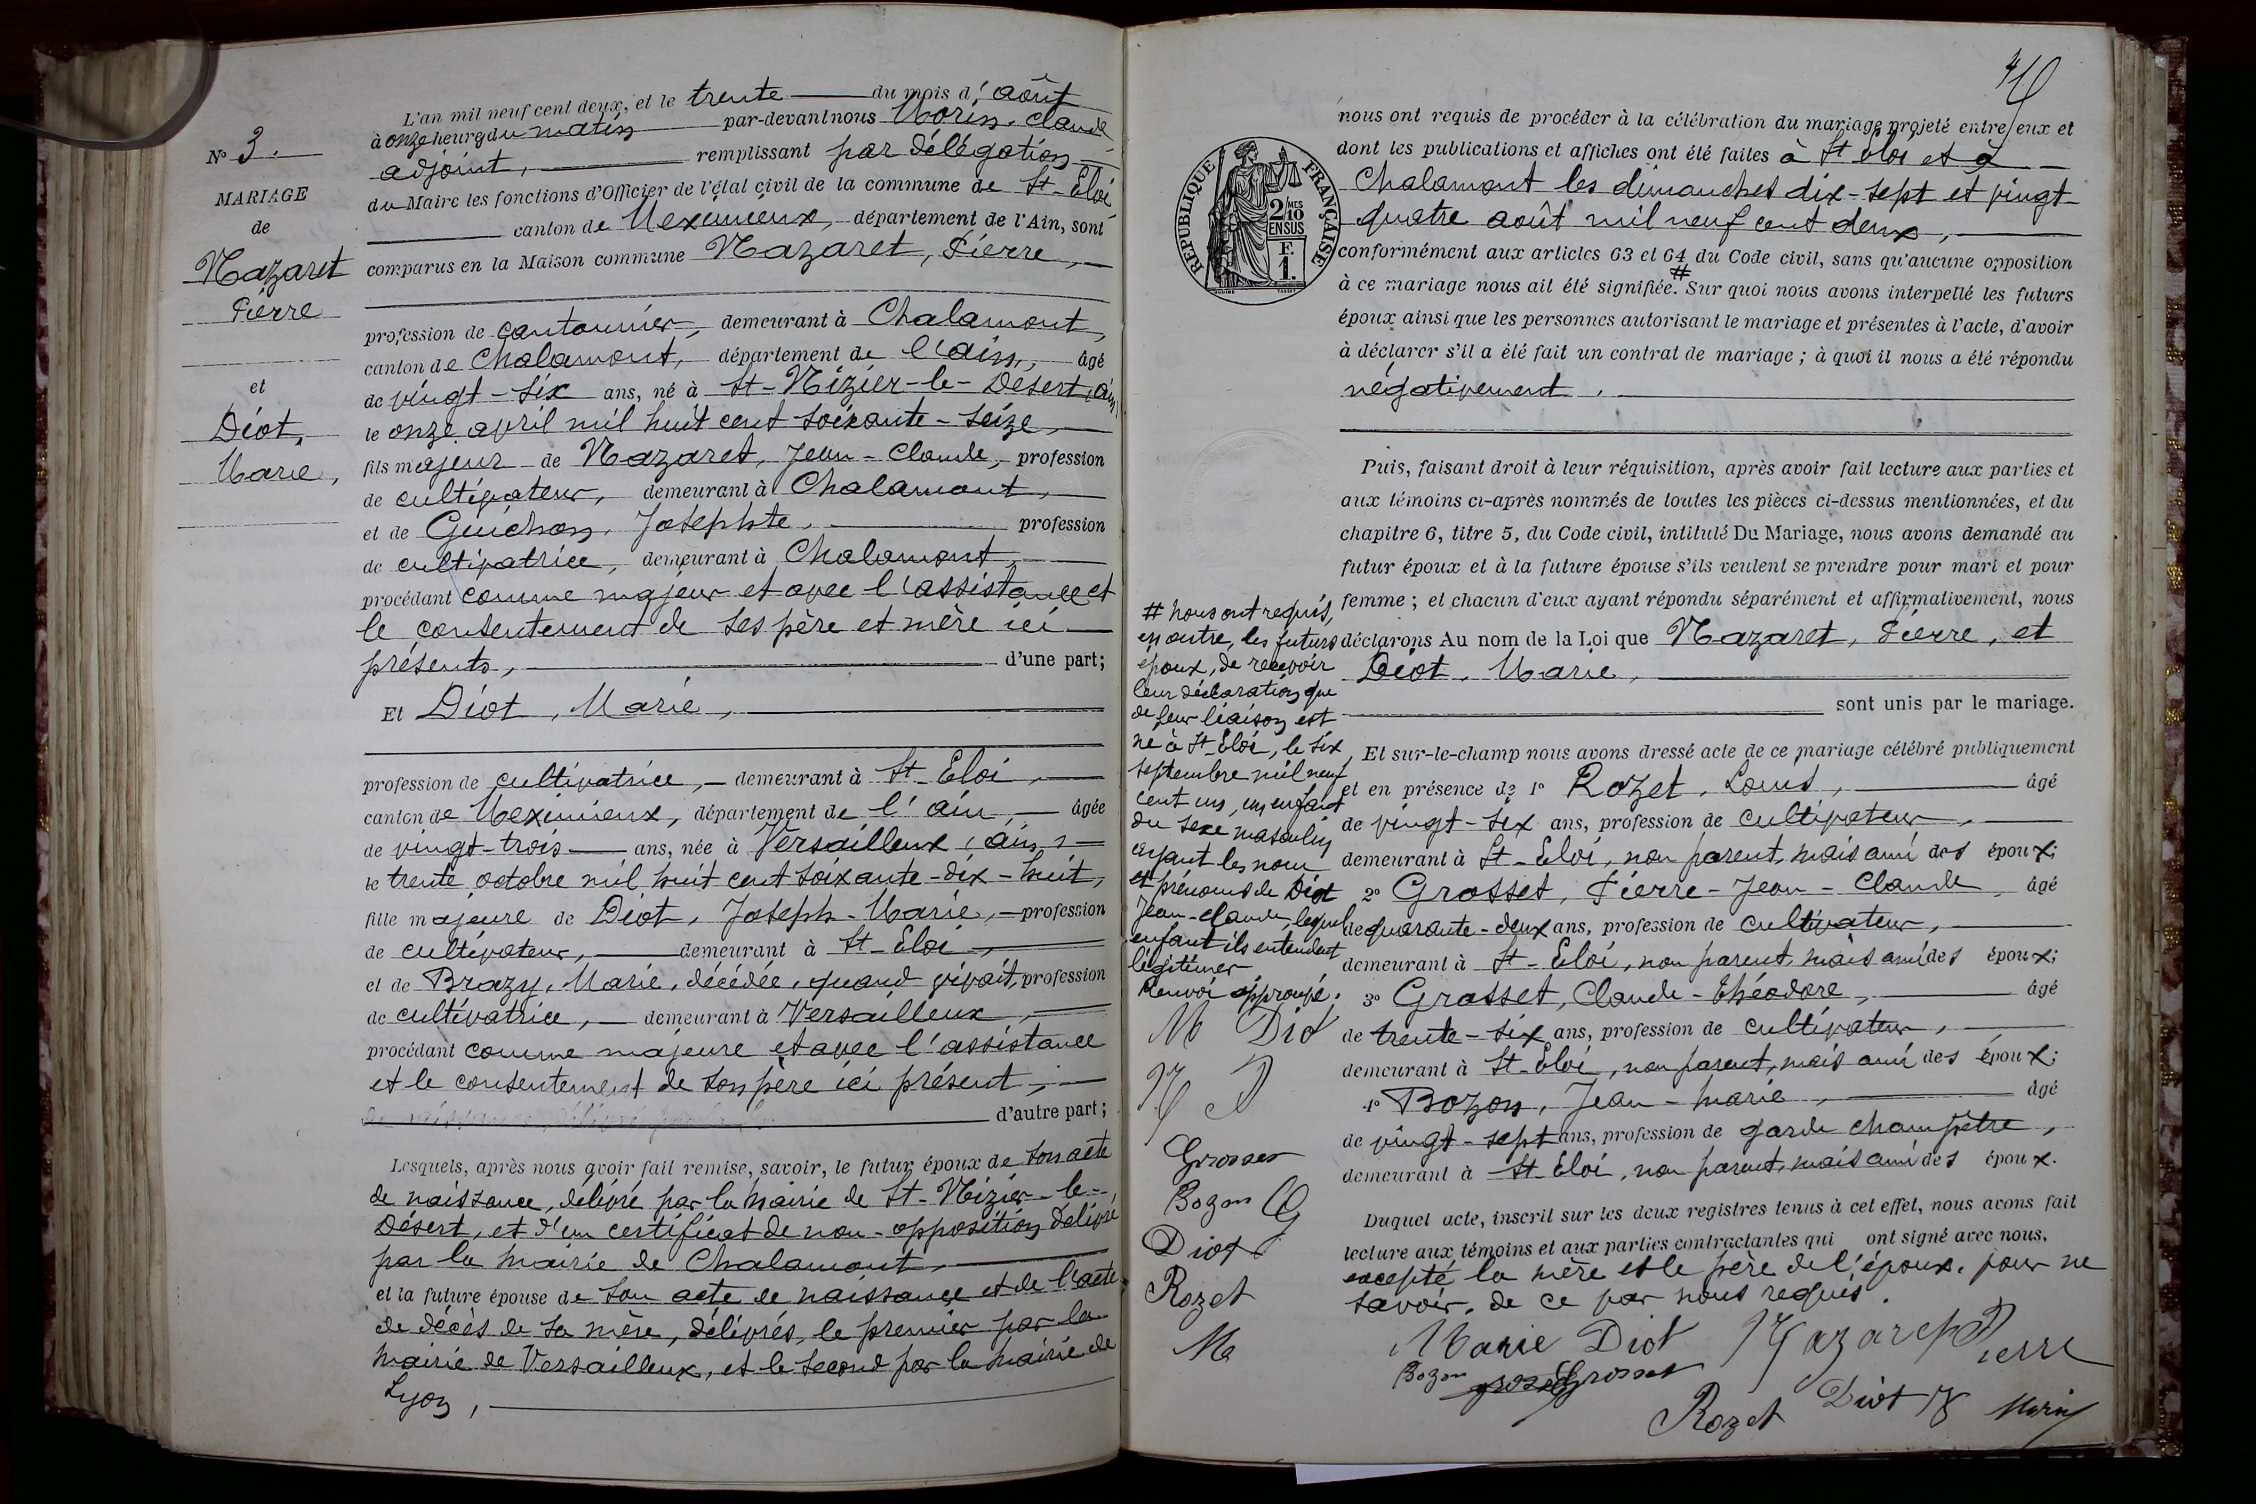 N° 3.
MARIAGE
de
Nazaret
Pierre
et
Diot,
Marie,
L'an mil neuf cent deux, et le trente du mois d'août
à onze heures du matin par-devant nous Morin, Claude
adjoint, remplissant par délégation
du Maire les fonctions d'Officier de l'état civil de la commune de St-Eloi
canton de Meximieux, département de l'Ain, sont
comparus en la Maison commune Nazaret, Pierre,
profession de cantonnier, demeurant à Chalamont,
canton de Chalamont, département de l'Ain, âgé
de vingt-six ans, né à St-Nizier-le-Désert, Ain,
le onze avril mil huit cent soixante-seize,
fils majeur de Nazaret, Jean-Claude, profession
de cultivateur, demeurant à Chalamont,
et de Guichon, Josephte, profession
de cultivatrice, demeurant à Chalamont,
procédant comme majeur et avec l'assistance et
le consentement de ses père et mère ici
présents, d'une part;
Et Diot, Marie,
profession de cultivatrice, demeurant à St-Eloi,
canton de Meximieux, département de l'Ain, âgée
de vingt-trois ans, née à Versailleux (Ain)
le trente octobre mil huit cent soixante-dix-huit,
fille majeure de Diot, Joseph-Marie, profession
de cultivateur, demeurant à St-Eloi,
et de Brazy, Marie, décédée, quand vivait, profession
de cultivatrice, demeurant à Versailleux,
procédant comme majeure et avec l'assistance
et le consentement de son père ici présent,
d'autre part;
Lesquels, après nous avoir fait remise, savoir, le futur époux de son acte
de naissance, délivré par la mairie de St-Nizier-le-
Désert, et d'un certificat de non-opposition délivré
par la mairie de Chalamont,
et la future épouse de son acte de naissance et de l'acte
de décès de sa mère, délivrés, le premier par la
mairie de Versailleux, et le second par la mairie de
Lyon,
nous ont requis de procéder à la célébration du mariage projeté entre eux et
dont les publications et affiches ont été faites à St Eloi et à
Chalamont les dimanches dix-sept et vingt-
quatre août mil neuf cent deux,
conformément aux articles 63 et 64 du Code civil, sans qu'aucune opposition
à ce mariage nous ait été signifiée. # Sur quoi nous avons interpellé les futurs
époux ainsi que les personnes autorisant le mariage et présentes à l'acte, d'avoir
à déclarer s'il a été fait un contrat de mariage ; à quoi il nous a été répondu
négativement.
RÉPUBLIQUE FRANÇAISE
2 MES
10
EN SUS
F.
1.
Puis, faisant droit à leur réquisition, après avoir fait lecture aux parties et
aux témoins ci-après nommés de toutes les pièces ci-dessus mentionnées, et du
chapitre 6, titre 5, du Code civil, intitulé Du Mariage, nous avons demandé au
futur époux et à la future épouse s'ils veulent se prendre pour mari et pour
femme ; et chacun d'eux ayant répondu séparément et affirmativement, nous
déclarons Au nom de la Loi que Nazaret, Pierre, et
Diot, Marie,
sont unis par le mariage.
Et sur-le-champ nous avons dressé acte de ce mariage célébré publiquement
et en présence de 1° Rozet, Louis, âgé
de vingt-six ans, profession de cultivateur,
demeurant à St-Eloi, non parent, mais ami des époux;
2° Grosset, Pierre-Jean-Claude, âgé
de quarante-deux ans, profession de cultivateur,
demeurant à St-Eloi, non parent, mais ami des époux;
3° Grosset, Claude-Théodore, âgé
de trente-six ans, profession de cultivateur,
demeurant à St-Eloi, non parent, mais ami des époux;
4° Bozon, Jean-Marie, âgé
de vingt-sept ans, profession de garde champêtre,
demeurant à St-Eloi, non parent, mais ami des époux.
Duquel acte, inscrit sur les deux registres tenus à cet effet, nous avons fait
lecture aux témoins et aux parties contractantes qui ont signé avec nous,
excepté la mère et le père de l'époux, pour ne
savoir, de ce par nous requis.
Marie Diot Nazaret Pierre
Bozon Grosset
Rozet Diot Morin
# Nous ont requis,
en outre, les futurs
époux, de recevoir
leur déclaration que
de leur liaison est
né à St-Eloi, le six
septembre mil neuf
cent un, un enfant
du sexe masculin
ayant les nom
et prénoms de Diot
Jean-Claude, lequel
enfant ils entendent
légitimer.
Renvoi approuvé.
M Diot
N P
Grosset
Bozon CG
Diot
Rozet
Mo